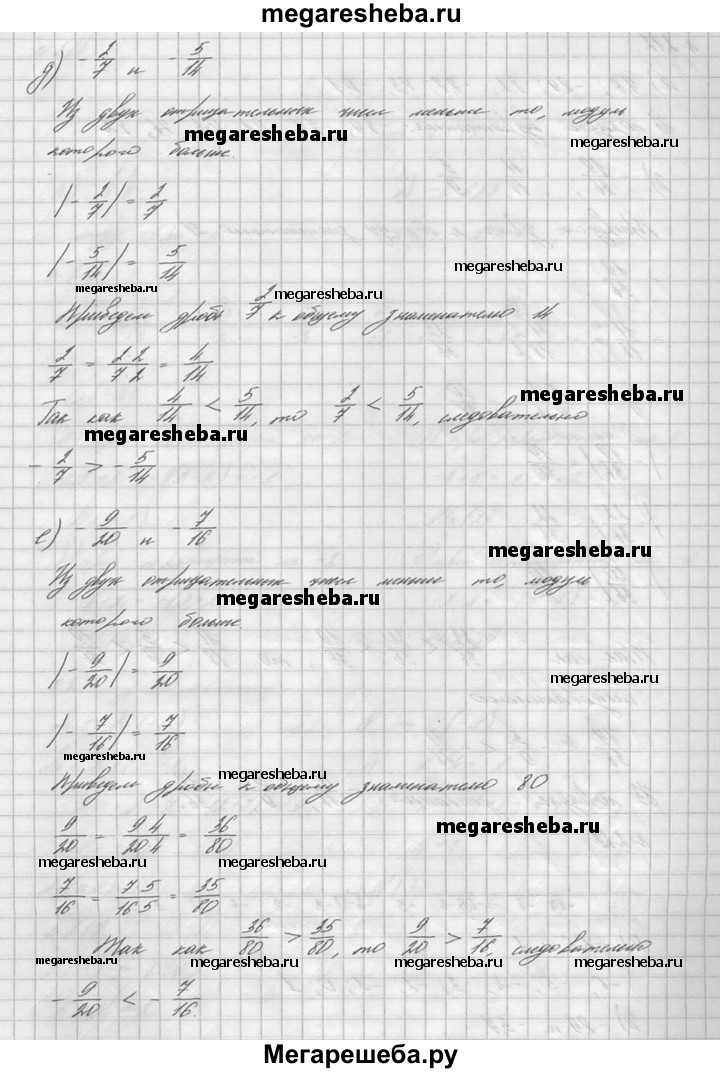 megaresheba.ru
д) -2/7 и -5/14
Из двух отрицательных чисел меньше то, модуль
megaresheba.ru megaresheba.ru
которого больше.
|-2/7| = 2/7
|-5/14| = 5/14
megaresheba.ru
megaresheba.ru megaresheba.ru
Приведем дробь 2/7 к общему знаменателю 14
2/7 = 2 2/7 2 = 4/14
megaresheba.ru
Так как 4/14 < 5/14, то 2/7 < 5/14, следовательно
megaresheba.ru
-2/7 > -5/14
е) -9/20 и -7/16
megaresheba.ru
Из двух отрицательных чисел меньше то, модуль
megaresheba.ru
которого больше.
|-9/20| = 9/20
megaresheba.ru
|-7/16| = 7/16
megaresheba.ru megaresheba.ru
Приведем дроби к общему знаменателю 80
9/20 = 9 4/20 4 = 36/80
megaresheba.ru
megaresheba.ru megaresheba.ru
7/16 = 7 5/16 5 = 35/80
Так как 36/80 > 35/80, то 9/20 > 7/16, следовательно
megaresheba.ru megaresheba.ru megaresheba.ru megaresheba.ru
-9/20 < -7/16.
Мегарешеба.ру